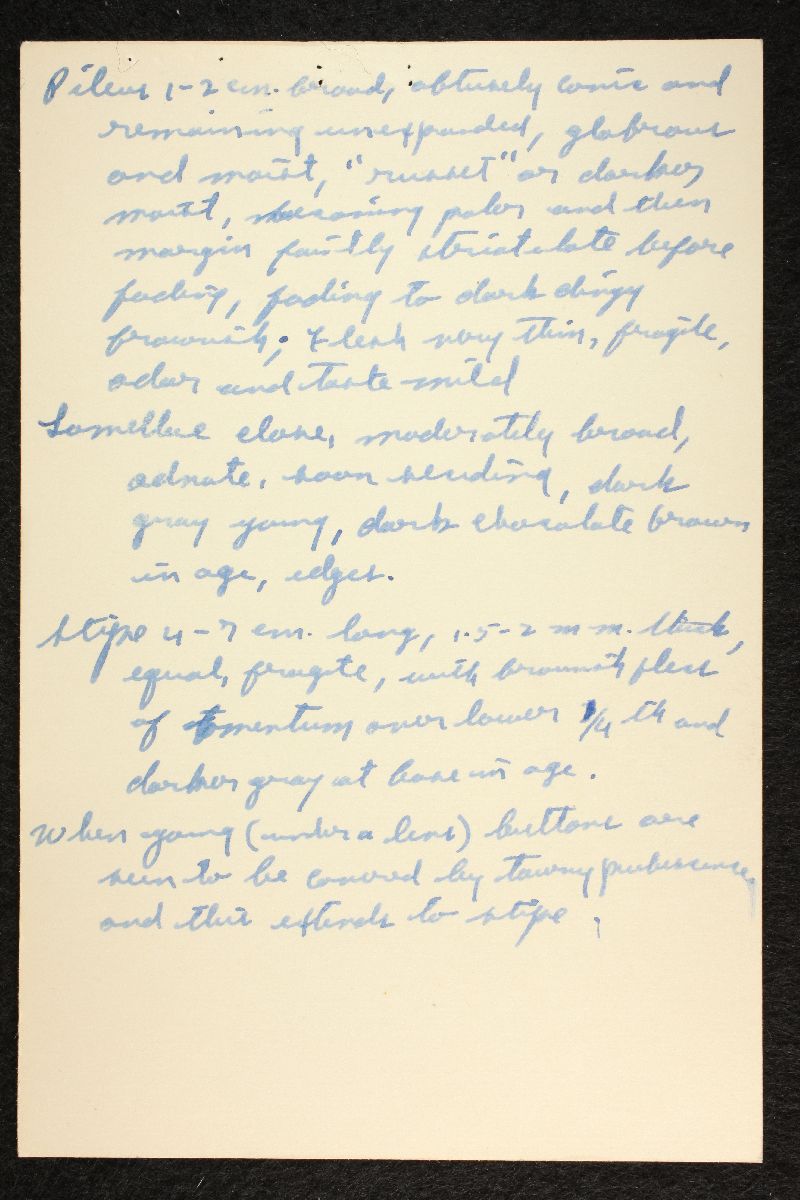 Pileus 1-2 cm. broad, obtusely conic and
remaining unexpanded, glabrous
and moist, "russet" or darker
moist, becoming paler and then
margin faintly striatulate before
fading, fading to dark dingy
brownish; flesh very thin, fragile,
odor and taste mild
Lamellae close, moderately broad,
adnate, soon seceding, dark
gray young, dark chocolate brown
in age, edges.
Stipe 4-7 cm. long, 1.5-2 mm. thick,
equal, fragile, with brownish
of tomentum over lower 1/4 th and
darker gray at base in age.
When young (under a lens) buttons are
seen to be covered by tawny pubescence
and this extends to stipe,